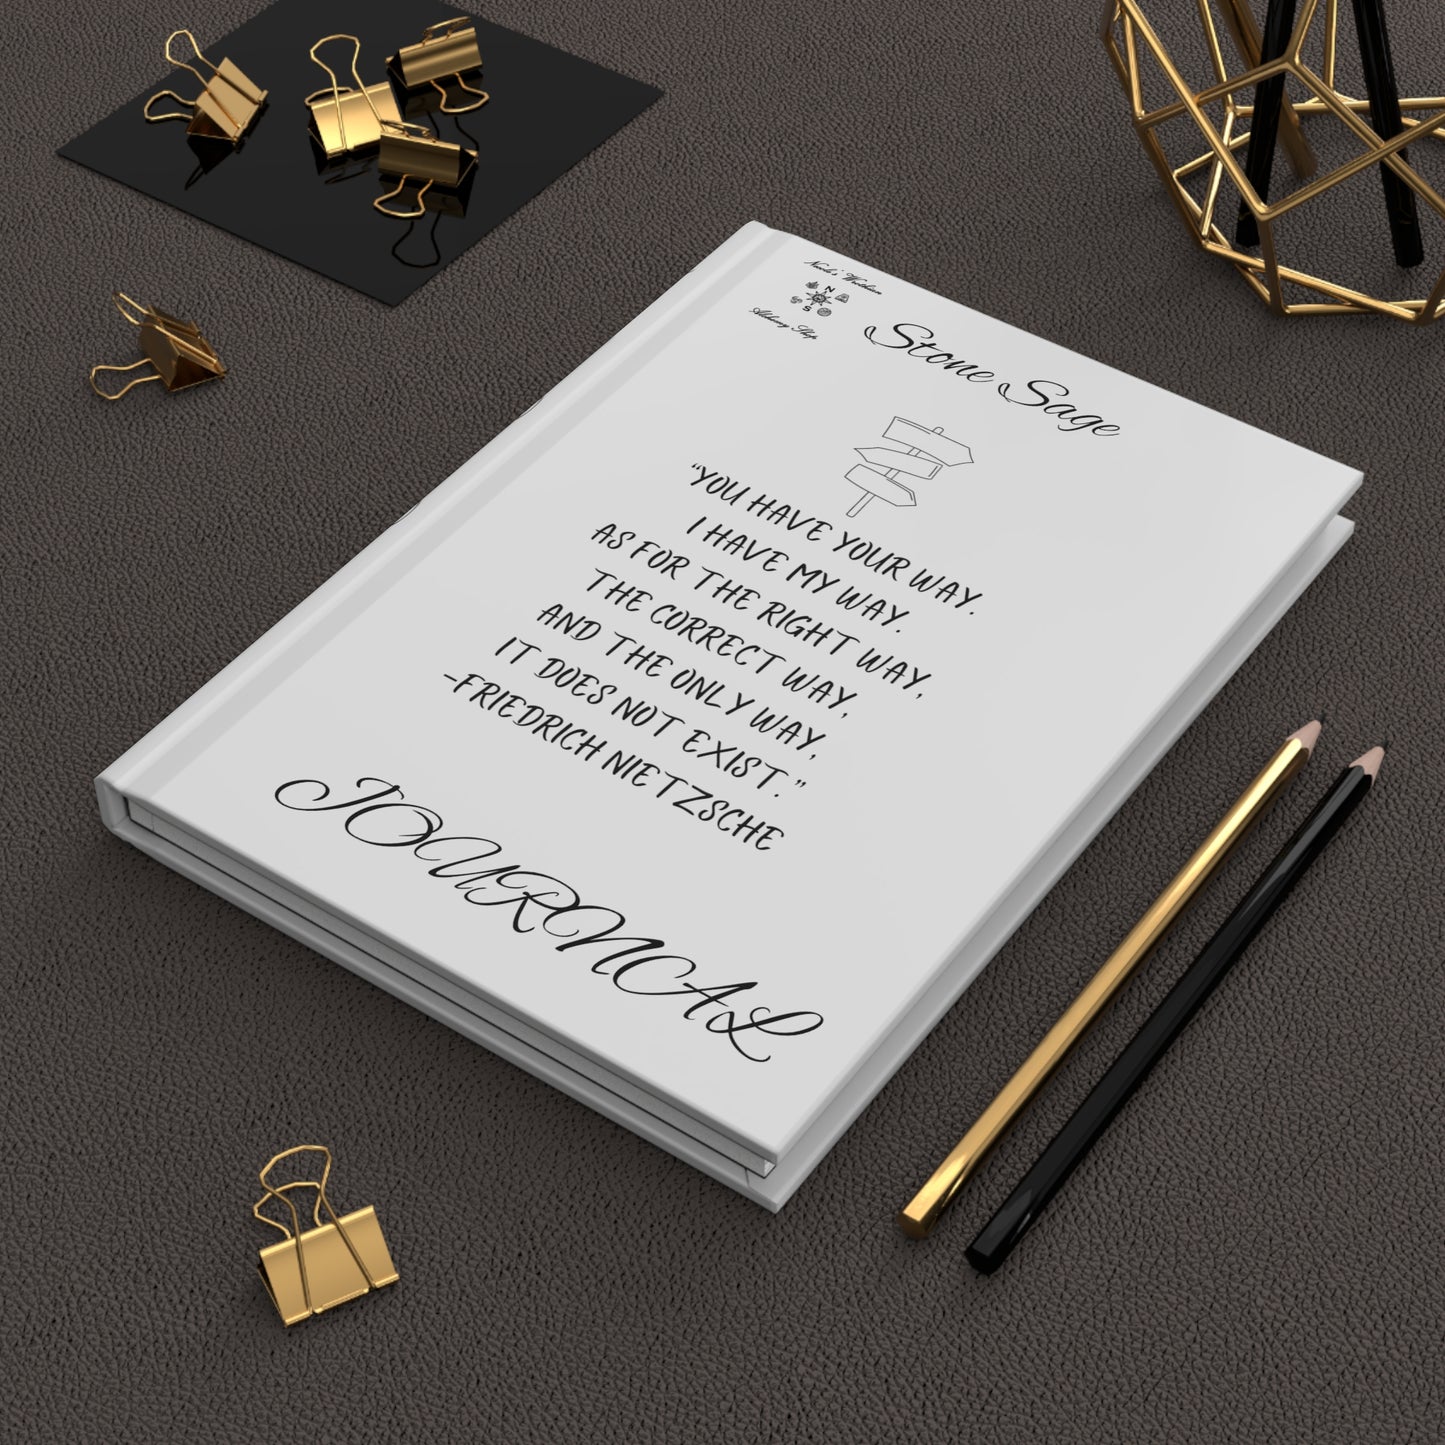 N
S
Alchemy Shop
Stone Sage
“YOU HAVE YOUR WAY.
I HAVE MY WAY.
AS FOR THE RIGHT WAY,
THE CORRECT WAY,
AND THE ONLY WAY,
IT DOES NOT EXIST.”
-FRIEDRICH NIETZSCHE
JOURNAL